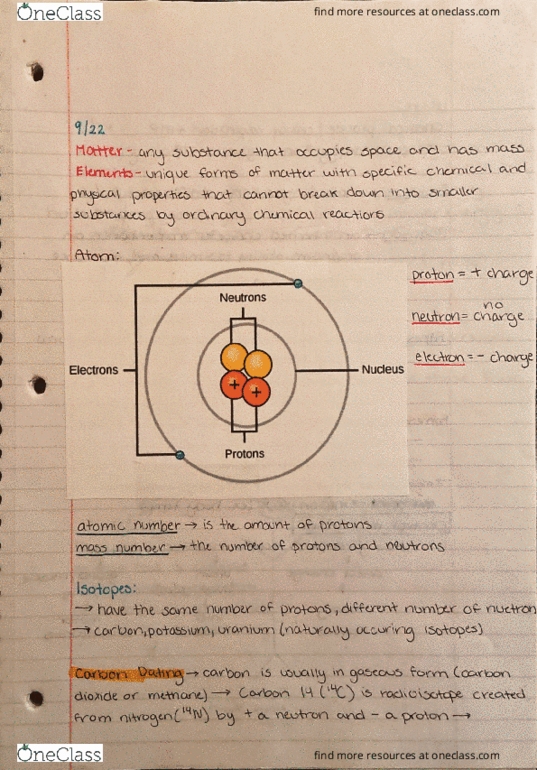 OneClass
find more resources at oneclass.com
9/22
Matter - any substance that occupies space and has mass
Elements - unique forms of matter with specific chemical and
physical properties that cannot break down into smaller
substances by ordinary chemical reactions
Atom:
proton = + charge
no
neutron = charge
electron = - charge
Neutrons
Electrons
Nucleus
+
+
Protons
atomic number → is the amount of protons
mass number → the number of protons and neutrons
Isotopes:
→ have the same number of protons, different number of nuetron
→ carbon, potassium, uranium (naturally occuring isotopes)
Carbon Dating → carbon is usually in gaseous form (carbon
dioxide or methane) → Carbon 14 (¹⁴C) is radioisotope created
from nitrogen (¹⁴N) by + a neutron and - a proton →
OneClass
find more resources at oneclass.com